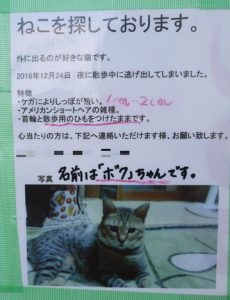 ねこを探しております。
外に出るのが好きな猫です。
2016年12月24日 夜に散歩中に逃げ出してしまいました。
特徴
・ケガによりしっぽが短い。1cm~2cm
・アメリカンショートヘアの雑種。
・首輪と散歩用のひもをつけたままです
心当たりの方は、下記へ連絡いただけます様、お願い致します。
写真 名前は「ボク」ちゃんです。